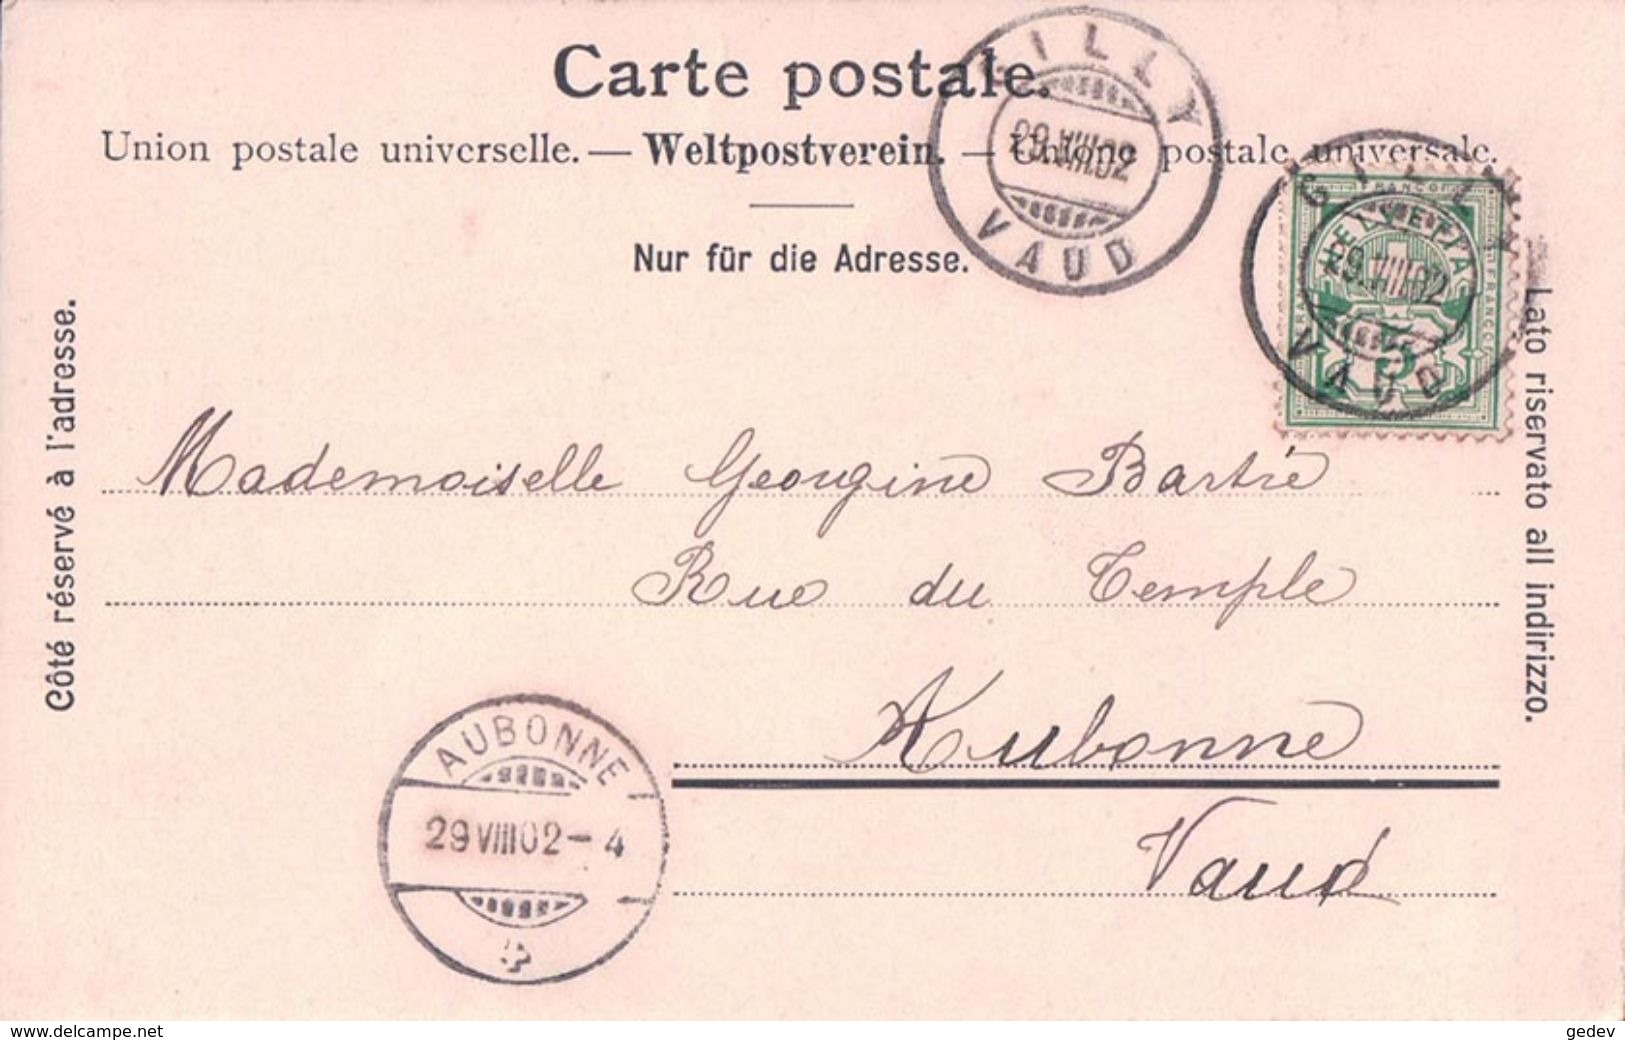 Carte postale.
Union postale universelle. — Weltpostverein. — Unione postale universale.
Nur für die Adresse.
Côté réservé à l'adresse.
Lato riservato all indirizzo.
GILLY
29.VIII.02
VAUD
FRANCO
HELVETIA
FRANCO
5
GILLY
29.VIII.02
VAUD
Mademoiselle Georgine Bartré
Rue du Temple
Aubonne
Vaud
AUBONNE
29 VIII 02 - 4
www.delcampe.net
gedev